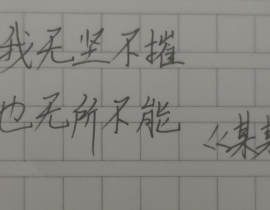 我无坚不摧
也无所不能 《某